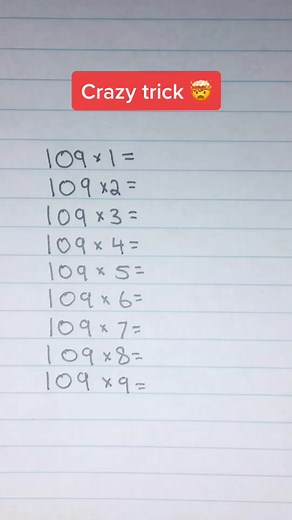 Crazy trick 🤯
109 × 1 =
109 × 2 =
109 × 3 =
109 × 4 =
109 × 5 =
109 × 6 =
109 × 7 =
109 × 8 =
109 × 9 =